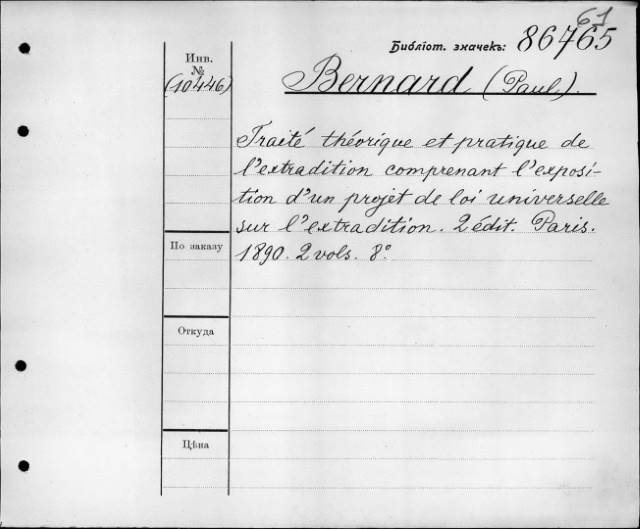 61
Библіот. значекъ: 86765
Инв.
№
(10446)
Bernard (Paul).
Traité théorique et pratique de
l'extradition comprenant l'exposi-
tion d'un projet de loi universelle
sur l'extradition. 2 édit. Paris.
1890. 2 vols. 8º
По заказу
Откуда
Цѣна